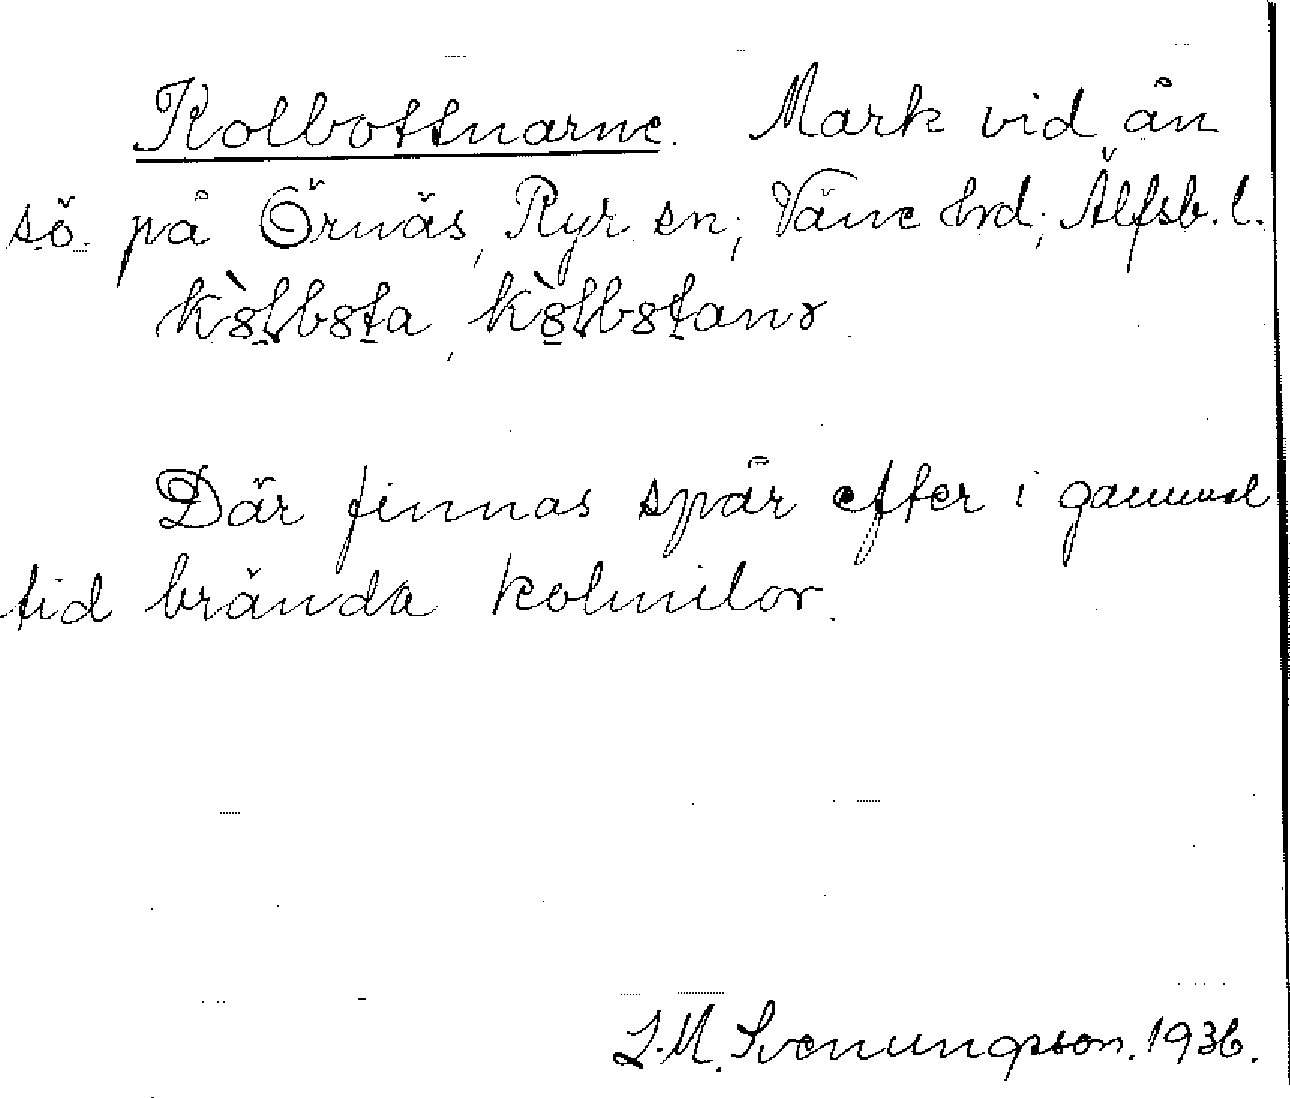 Kolbottnarne. Mark vid ån
sö. på Örnäs, Ryr sn; Väne hrd; Älfsb. l.
Där finnas spår efter i gammal
tid brända kolmilor.
J. M. Svenungsson. 1936.